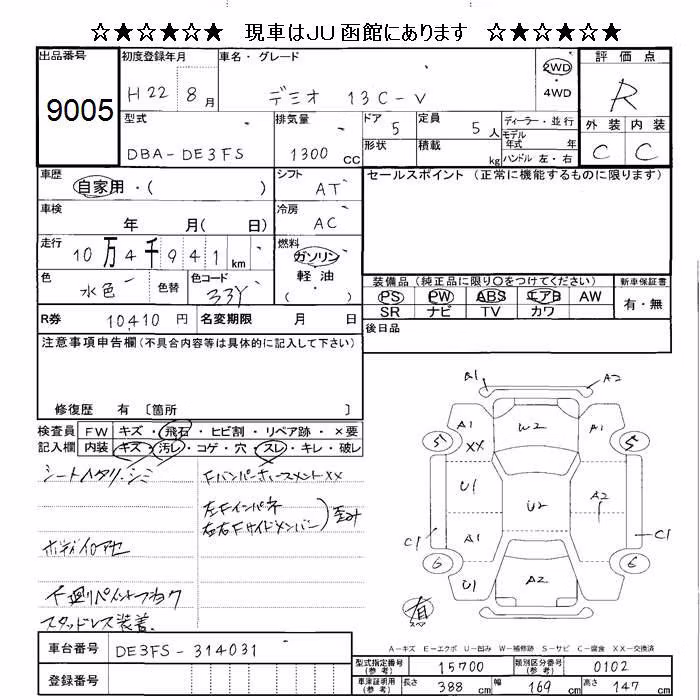 ☆★☆★☆★ 現車はJU函館にあります ☆★☆★☆★
出品番号 9005
初度登録年月 H22 8月
車名・グレード デミオ 13C-V
2WD ・4WD
評価点 R
型式 DBA-DE3FS
排気量 1300 cc
ドア 5 形状
定員 5人 積載 kg
ディーラー・並行
モデル年式 年
ハンドル 左・右
外装 内装
C C
車歴 自家用・( )
シフト AT
セールスポイント (正常に機能するものに限ります)
車検 年 月( 日)
冷房 AC
走行 10万4千941km
燃料 ガソリン 軽油 ( )
色 水色 色替
色コード 33Y
装備品 (純正品に限り○をつけてください)
新車保証書 有・無
PS PW ABS エアB AW
SR ナビ TV カワ
R券 10,410 円 名変期限 月 日
後日品
注意事項申告欄 (不具合内容等は具体的に記入して下さい)
修復歴 有 〔箇所 〕
検査員記入欄
FW キズ・飛石・ヒビ割・リペア跡・×要
内装 キズ・汚レ・コゲ・穴・スレ・キレ・破レ
シートヘタリ・シミ
FバンパーホースメントXX
左Fインパネ
左右Fサイドメンバー
歪み
ボディ色アセ
下廻りペイントフヨク
スタッドレス装着
A1 A2
A1 W2 A1
5 XX 5
U1 U2 A2
C1 A1 C1
6 6
U1 A2
有 スペア
A-キズ E-エクボ U-凹み W-補修跡 S-サビ C-腐食 XX-交換済
車台番号 DE3FS-314031
登録番号
型式指定番号(参考) 15700 類別区分番号(参考) 0102
車庫証明用(参考) 長さ 388 cm 幅 169 cm 高さ 147 cm